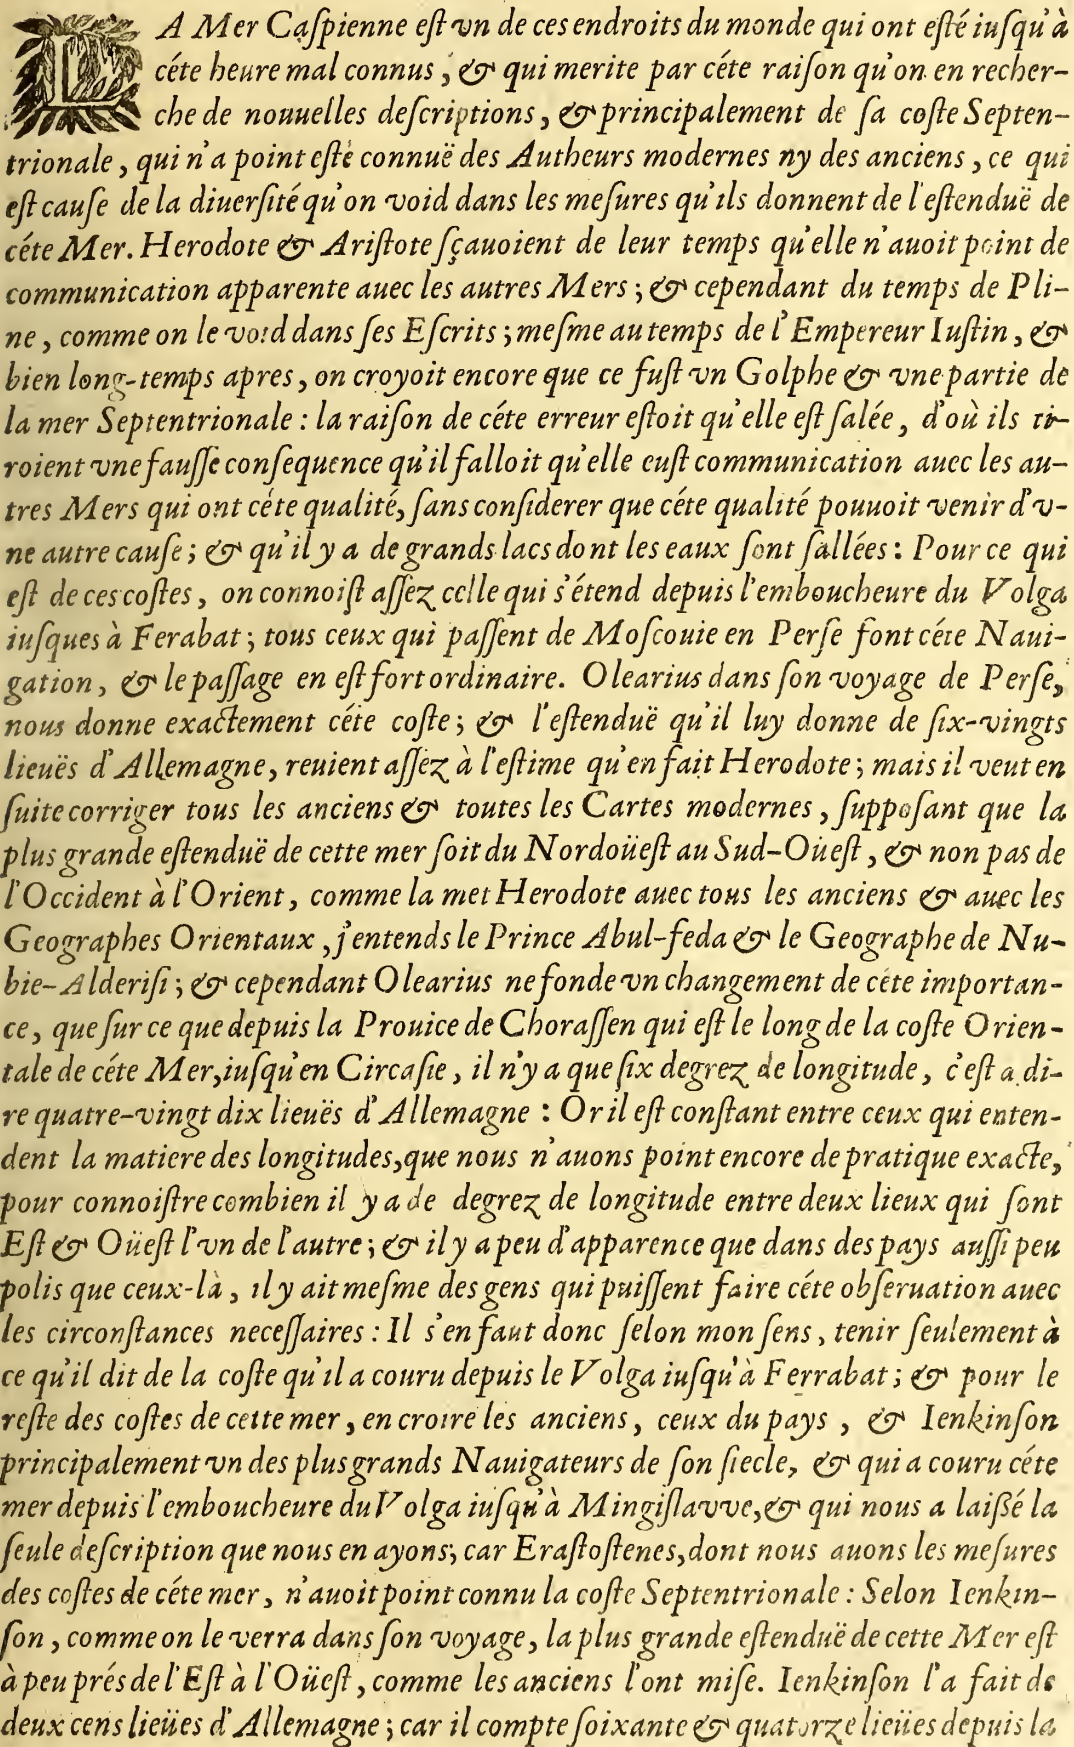 LA Mer Caſpienne eſt vn de ces endroits du monde qui ont eſté iuſqu'à
céte heure mal connus, & qui merite par céte raiſon qu'on en recher-
che de nouuelles deſcriptions, & principalement de ſa coſte Septen-
trionale, qui n'a point eſté connuë des Autheurs modernes ny des anciens, ce qui
eſt cauſe de la diuerſité qu'on void dans les meſures qu'ils donnent de l'eſtenduë de
céte Mer. Herodote & Ariſtote ſçauoient de leur temps qu'elle n'auoit point de
communication apparente auec les autres Mers; & cependant du temps de Pli-
ne, comme on le void dans ſes Eſcrits; meſme au temps de l'Empereur Iuſtin, &
bien long-temps apres, on croyoit encore que ce fuſt vn Golphe & vne partie de
la mer Septentrionale: la raiſon de céte erreur eſtoit qu'elle eſt ſalée, d'où ils ti-
roient vne fauſſe conſequence qu'il falloit qu'elle euſt communication auec les au-
tres Mers qui ont céte qualité, ſans conſiderer que céte qualité pouuoit venir d'v-
ne autre cauſe; & qu'il y a de grands lacs dont les eaux ſont ſallées: Pour ce qui
eſt de ces coſtes, on connoiſt aſſez celle qui s'étend depuis l'emboucheure du Volga
iuſques à Ferabat; tous ceux qui paſſent de Moſcouie en Perſe font céte Naui-
gation, & le paſſage en eſt fort ordinaire. Olearius dans ſon voyage de Perſe,
nous donne exactement céte coſte; & l'eſtenduë qu'il luy donne de ſix-vingts
lieuës d'Allemagne, reuient aſſez à l'eſtime qu'en fait Herodote; mais il veut en
ſuite corriger tous les anciens & toutes les Cartes modernes, ſuppoſant que la
plus grande eſtenduë de cette mer ſoit du Nordoüeſt au Sud-Oüeſt, & non pas de
l'Occident à l'Orient, comme la met Herodote auec tous les anciens & auec les
Geographes Orientaux, j'entends le Prince Abul-feda & le Geographe de Nu-
bie-Alderiſi; & cependant Olearius ne fonde vn changement de céte importan-
ce, que ſur ce que depuis la Prouice de Choraſſen qui eſt le long de la coſte Orien-
tale de céte Mer, iuſqu'en Circaſie, il n'y a que ſix degrez de longitude, c'eſt a di-
re quatre-vingt dix lieuës d'Allemagne: Or il eſt conſtant entre ceux qui enten-
dent la matiere des longitudes, que nous n'auons point encore de pratique exacte,
pour connoiſtre combien il y a de degrez de longitude entre deux lieux qui ſont
Eſt & Oüeſt l'vn de l'autre; & il y a peu d'apparence que dans des pays auſſi peu
polis que ceux-là, il y ait meſme des gens qui puiſſent faire céte obſeruation auec
les circonſtances neceſſaires: Il s'en faut donc ſelon mon ſens, tenir ſeulement à
ce qu'il dit de la coſte qu'il a couru depuis le Volga iuſqu'à Ferrabat; & pour le
reſte des coſtes de cette mer, en croire les anciens, ceux du pays, & Ienkinſon
principalement vn des plus grands Nauigateurs de ſon ſiecle, & qui a couru céte
mer depuis l'emboucheure du Volga iuſqu'à Mingiſlavve, & qui nous a laiſſé la
ſeule deſcription que nous en ayons; car Eraſtoſtenes, dont nous auons les meſures
des coſtes de céte mer, n'auoit point connu la coſte Septentrionale: Selon Ienkin-
ſon, comme on le verra dans ſon voyage, la plus grande eſtenduë de cette Mer eſt
à peu prés de l'Eſt à l'Oüeſt, comme les anciens l'ont miſe. Ienkinſon l'a fait de
deux cens lieües d'Allemagne; car il compte ſoixante & quatorze lieües depuis la